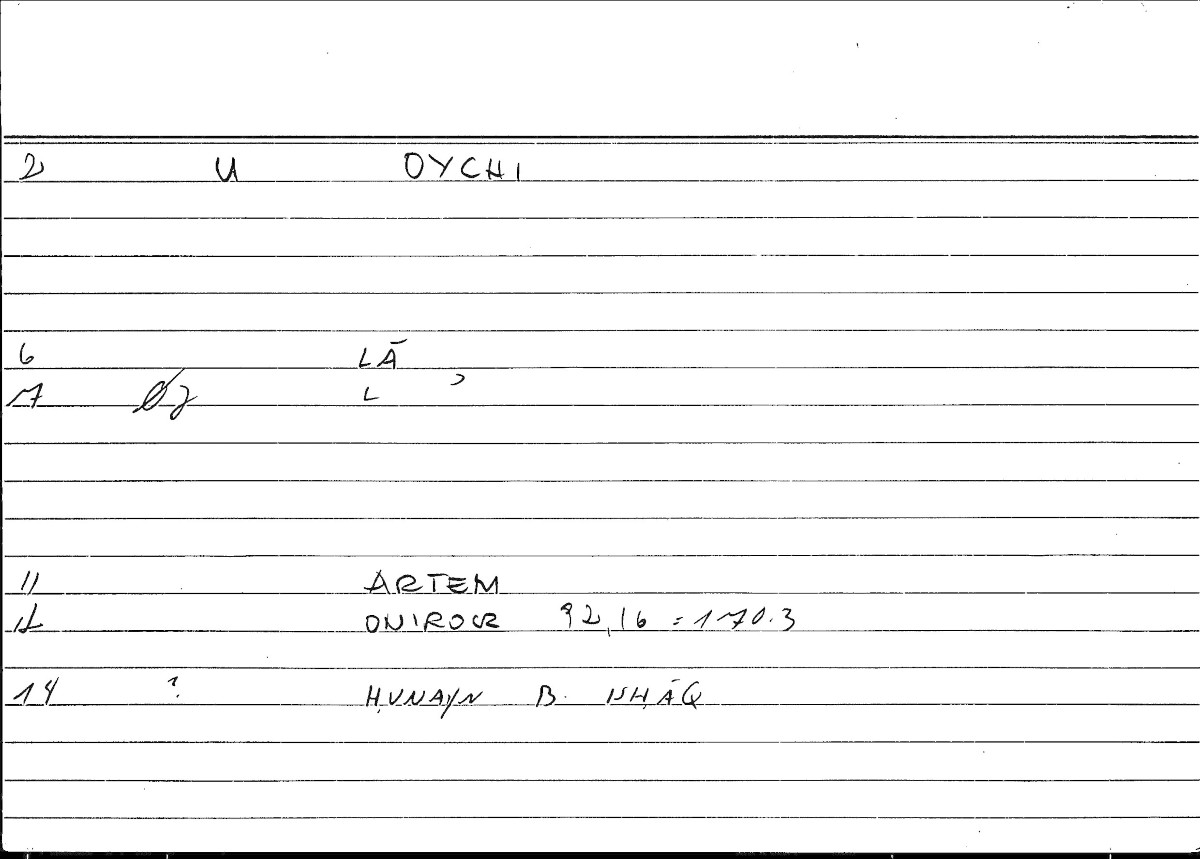 2 U OYCHI
6 LĀ
7 Øz L ʾ
11 ARTEM
12 ONIROCR 92,16 = 170.3
14 ? ḤUNAYN B. ISḤĀQ